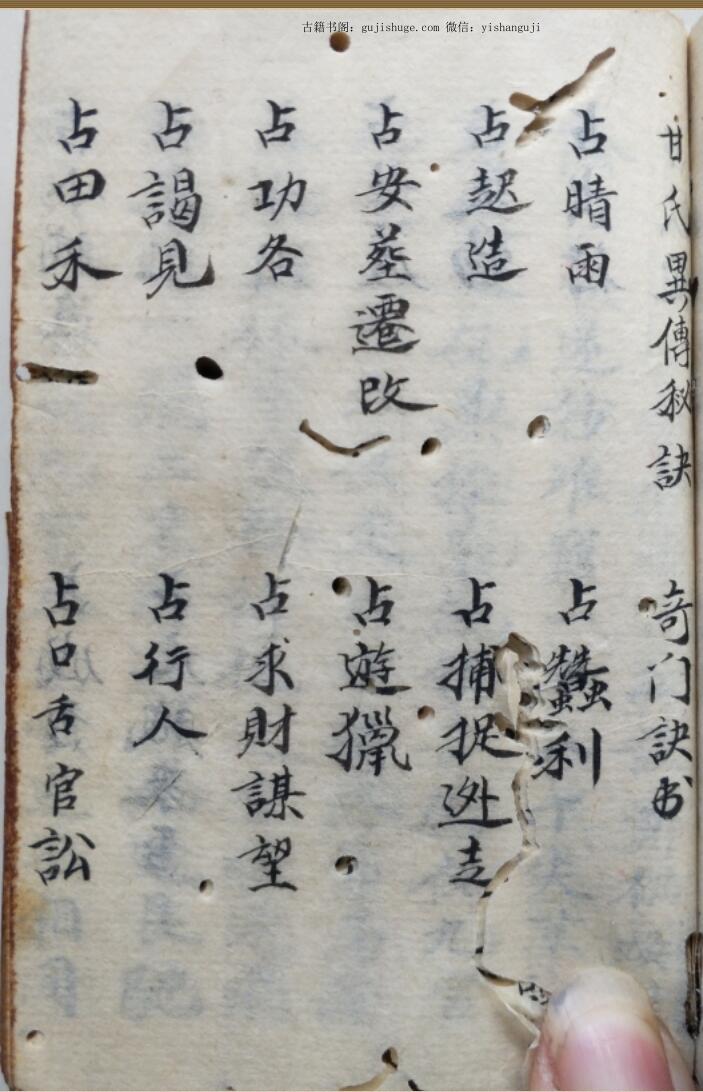 古籍书阁：gujishuge.com 微信：yishanguji
甘氏異傳秘訣 奇门訣书
占晴雨 占蠶利
占起造 占捕捉迯走
占安葬遷改 占遊獵
占功各 占求財謀望
占謁見 占行人
占田禾 占口舌官訟